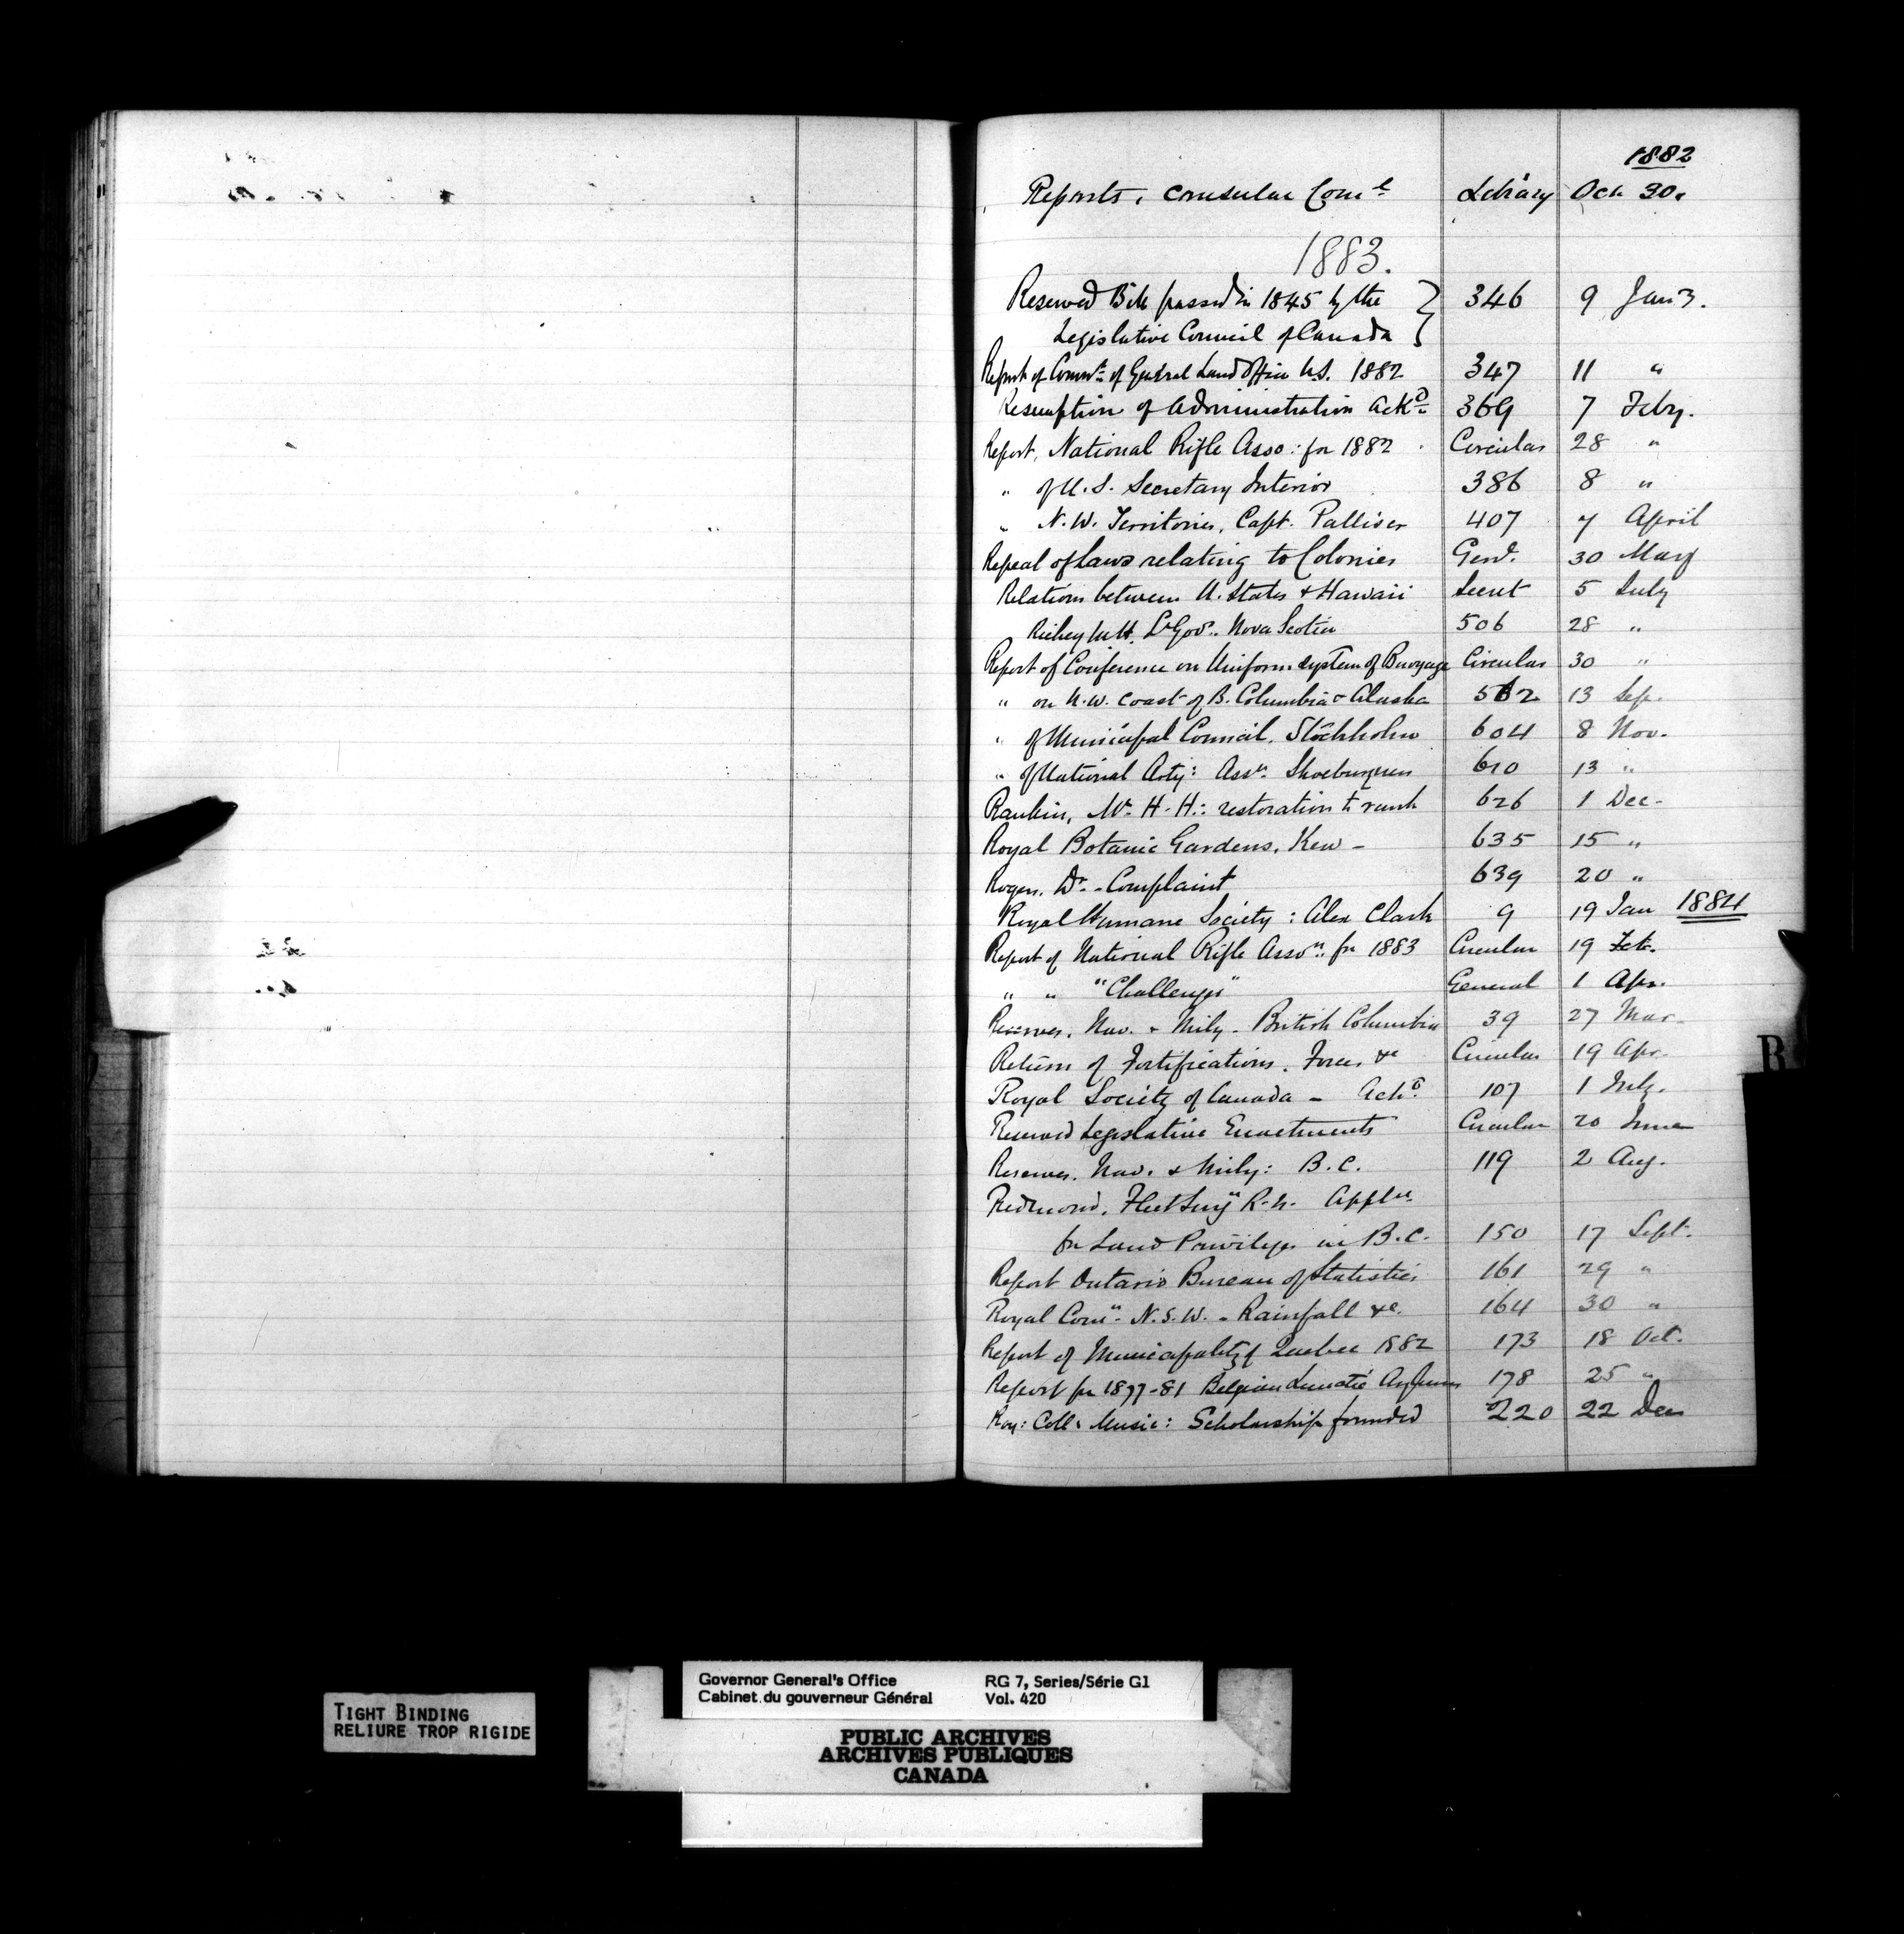 1882
Reports, Consular Com.l Library Oct 30.
1883.
Reserved Bill passed in 1845 by the } 346 9 Jan 3.
Legislative Council of Canada
Report of Comm.r of General Land Office U.S. 1882 347 11 "
Resumption of Administration Ack.d 369 7 Feby.
Report, National Rifle Asso: for 1882 Circular 28 "
" of U.S. Secretary Interior 386 8 "
" N.W. Territories, Capt. Palliser 407 7 April
Repeal of Laws relating to Colonies Genl. 30 May
Relations between U. States & Hawaii Secret 5 July
Richey M.H. Lt Govr. Nova Scotia 506 28 "
Report of Conference on Uniform system of Buoyage Circular 30 "
" on N.W. Coast of B. Columbia & Alaska 562 13 Sep.
" of Municipal Council, Stockholm 604 8 Nov.
" of National Arty: Assn. Shoeburyness 610 13 "
Rankin, Mr. H.H.: restoration to rank 626 1 Dec.
Royal Botanic Gardens, Kew - 635 15 "
Rogers, Dr. - Complaint 639 20 "
Royal Humane Society: Alex Clark 9 19 Jan 1884
Report of National Rifle Asson. for 1883 Circular 19 Feb.
" " "Challenges" General 1 Apr.
Reserves, Nav. & Mily - British Columbia 39 27 Mar.
Return of Fortifications, Forces &c Circular 19 Apr.
Royal Society of Canada - Ackd. 107 1 July.
Reserved Legislative Enactments Circular 20 June
Reserves, Nav. & Mily: B.C. 119 2 Aug.
Redmond, Fleet Surgn R.N. Appln.
for Land Privileges in B.C. 150 17 Sept.
Report Ontario Bureau of Statistics 161 29 "
Royal Comn. N.S.W. - Rainfall &c. 164 30 "
Report of Municipality of Quebec 1882 173 18 Oct.
Report for 1877-81 Belgian Lunatic Asylums 178 25 "
Roy: Coll: Music: Scholarship founded 220 22 Dec
R
TIGHT BINDING
RELIURE TROP RIGIDE
Governor General's Office RG 7, Series/Série G1
Cabinet du gouverneur Général Vol. 420
PUBLIC ARCHIVES
ARCHIVES PUBLIQUES
CANADA